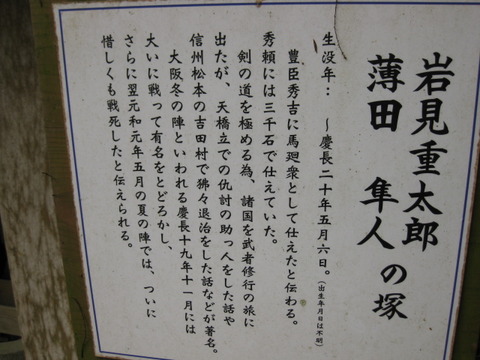 岩見重太郎
薄田 隼人の塚
生没年： ～慶長二十年五月六日。(出生年月日は不明)
豊臣秀吉に馬廻衆として仕えたと伝わる。
秀頼には三千石で仕えていた。
剣の道を極める為、諸国を武者修行の旅に
出たが、天橋立での仇討の助っ人をした話や
信州松本の吉田村で狒々退治をした話などが著名。
大阪冬の陣といわれる慶長十九年十一月には
大いに戦って有名をとどろかし、
さらに翌元和元年五月の夏の陣では、ついに
惜しくも戦死したと伝えられる。